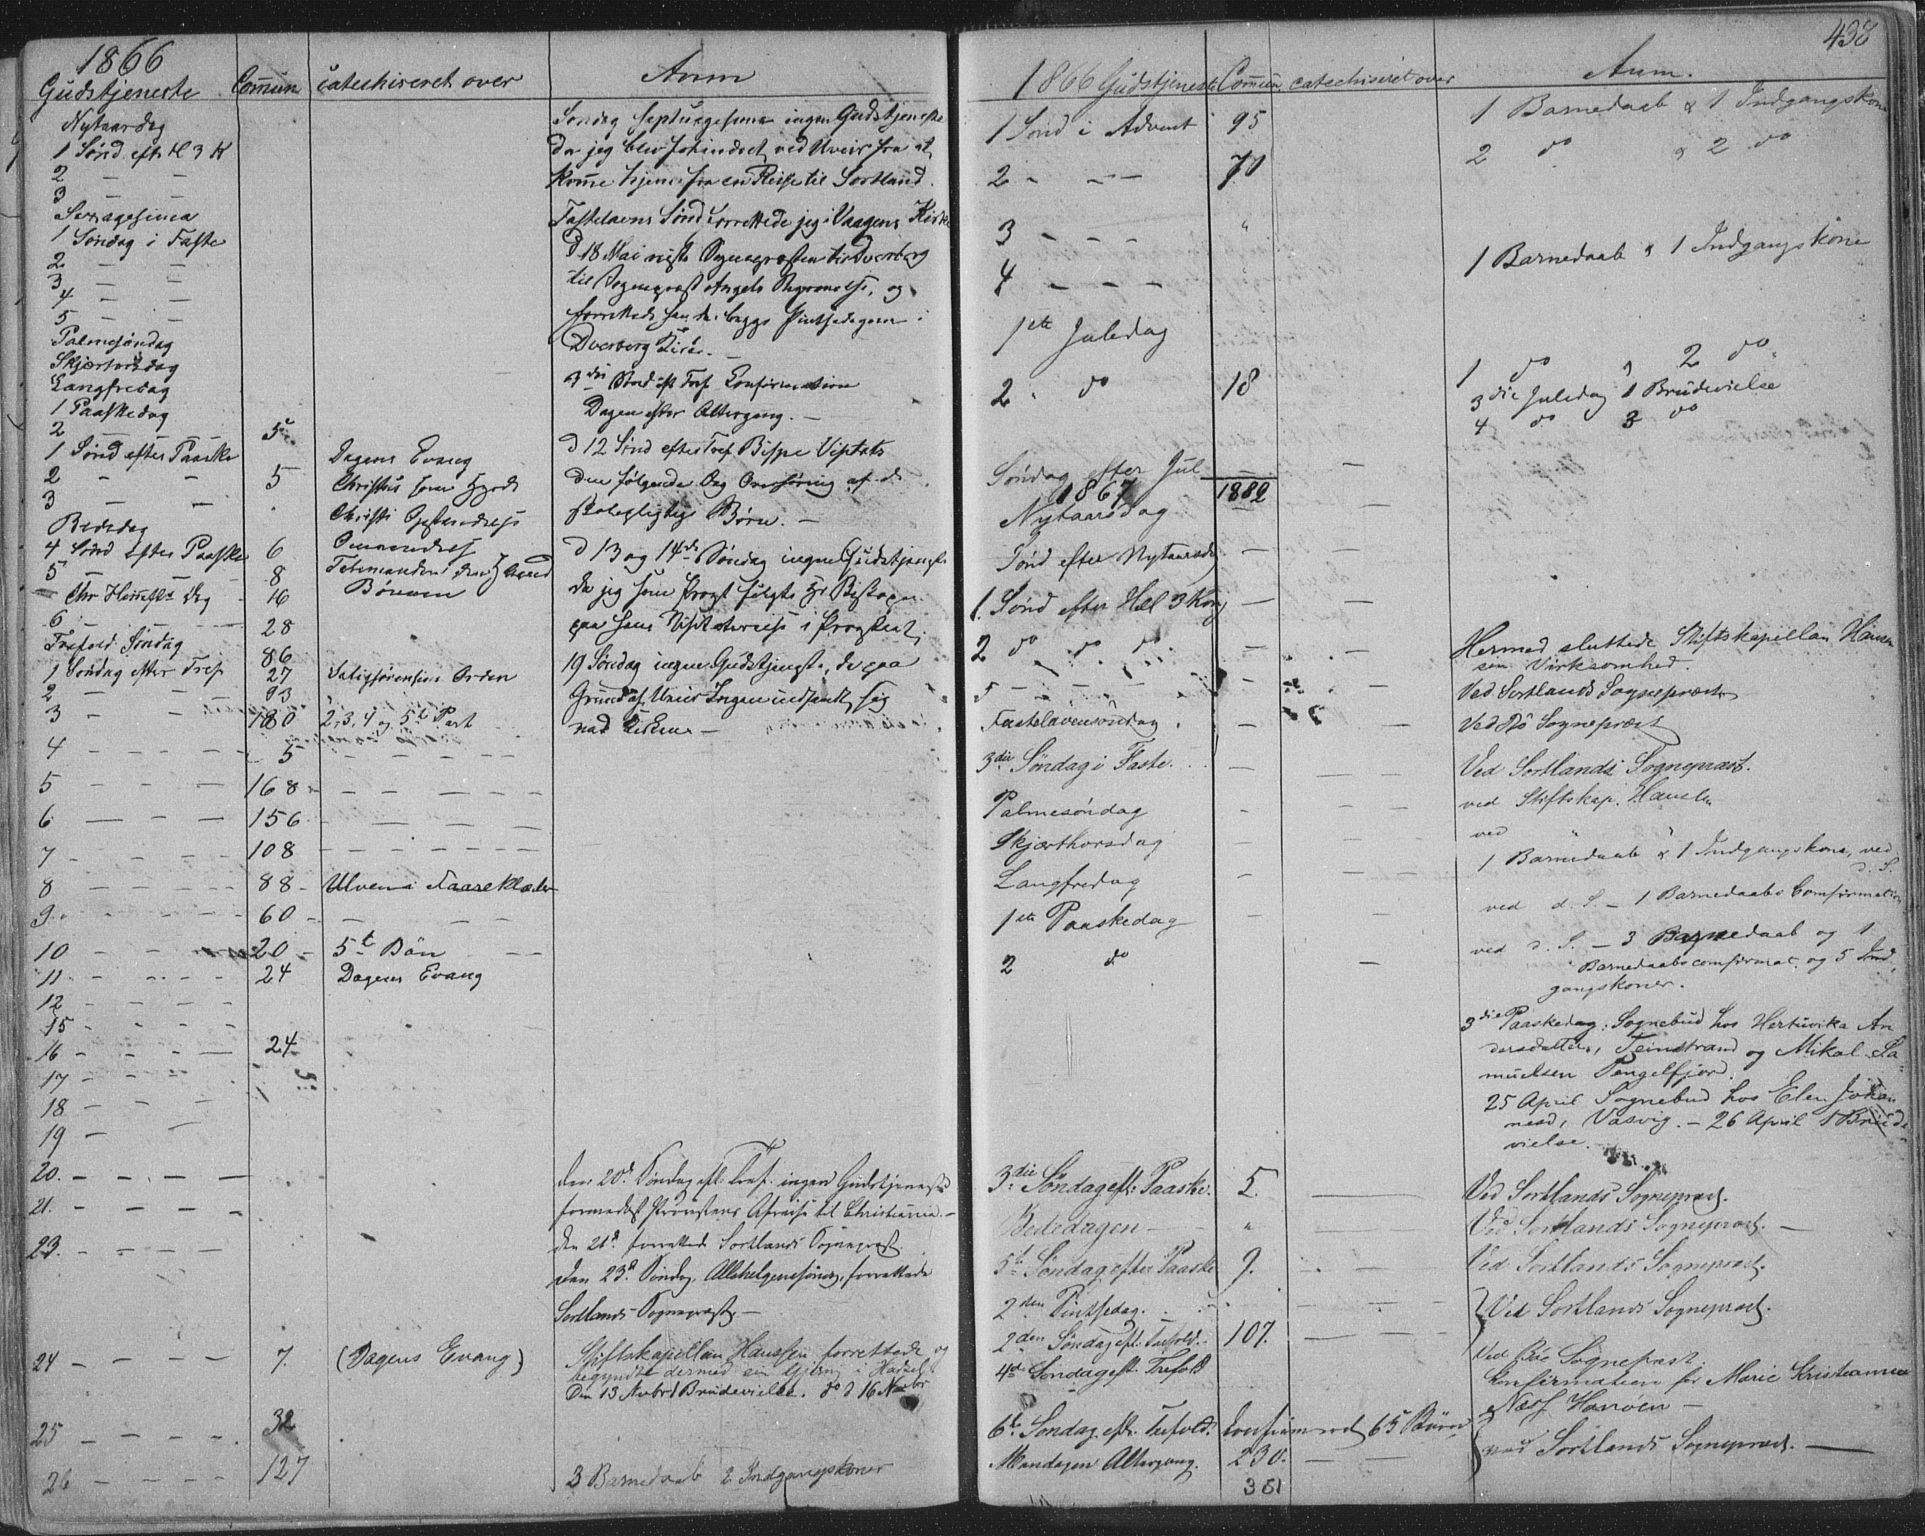 1866
Gudstjeneste Commun catechiseret over Anm
Nytaarsdag
1 Sønd. eft H 3 K
2 — —
3 — —
Sexagesima
1 Søndag i Faste
2 — —
3 — —
4 — —
5 — —
Palmesøndag
Skjærtorsdag
Langfredag
1 Paaskedag
2 — 5
1 Sønd efter Paaske Dagens Evang
2 — — 5 Christus som Hyrde
3 — — Christi
Bededag
4 Sønd efter Paaske 6
5 — 8
Chr Himmelf. Dag 16 Børnene
6 — 28
Trefold. Søndag 86
1 Søndag efter Tref 27 Saliggjørelsens Orden
2 — — 93
3 — — 180 2, 3, 4 og 5te Part
4 — — — 5 — — —
5 — — — 168 — — —
6 — — — 156 — — —
7 — — — 108 — — —
8 — — — 88 — Ulvene i Faareklæder
9 — — — 60 — —
10 — — — 20 — 5te Bøn — —
11 — — — 24 Dagens Evang
12 — — —
15 — — —
16 — — — 24
17 — — —
18 — —
19 — —
20. — — —
21. — — —
23. — — —
24 — — — 7. (Dagens Evang)
25 — — — 32
26 — — — 127
Søndag Septuagesima ingen Gudstjeneste
da jeg blev forhindret ved Uveir fra at
komme hjem fra en Reise til Sortland.
Fastelavns Sønd forrettede jeg i Vaagens Kirke
d 18 Mai reiste Sognepræsten til Dverberg
til Sognepræst Angels Begravelse, og
forrettede han de begge Pintsedagene i
Dverberg Kirke. —
3die Sønd eft Tref Confirmation
Dagen efter Altergang. —
d 12 Sønd efter Tref Bispe Visitats
den følgende Dag Overhøring af de
skolepligtige Børn. —
d 13 og 14de Søndag ingen Gudstjeneste
da jeg som Provst fulgte Hr Bispen
paa hans Visitatsreise i Provstiet.
19 Søndag ingen Gudstjeneste, da paa
Grund af Uveir Ingen indfandt sig
ved Kirken —
Den 20d Søndag eft. Tref. ingen Gudstjeneste
formedelst Provstens Afreise til Christiania. —
Den 21d forrettede Sortlands Sognepræst.
Den 23d Søndag, Allehelgensøndag, forrettede
Sortlands Sognepræst. —
Stiftskapellan Hanssen forrettede og
begyndte dermed sin Gjerning i Hadsel
Den 13 Novbr 1 Brudevielse. do d 16 Novbr
3 Barnedaab 2 Indgangskoner
438
1866 Gudstjeneste Commun catechiseret over Anm.
1 Sønd i Advent 95 1 Barnedaab & 1 Indgangskone
2 — — — 70 2 do & 2 do
3 — — — "
4 — — — 1 Barnedaab & 1 Indgangskone
1ste Juledag
2. do 18 1 do & 2 do
3die Juledag 1 Brudevielse
4 do 3 do
Søndag efter Jul — —
1867 1882
Nytaarsdag
Sønd efter Nytaarsdag — —
1. Sønd efter Hel 3 Kong — —
2 do do do — — Hermed sluttede Stiftskapellan Hans-
sen Virksomhed.
5 — — — — Ved Sortlands Sognepræst
Fastelavensøndag. — Ved Bø Sognepræst
3die Søndag i Faste. — — Ved Sortlands Sognepræst.
Palmesøndag — — ved Stiftskap. Hansen
Skjærthorsdag — — ved " "
Langfredag — — 1 Barnedaab & 1 Indgangskone, ved
d. S.
1ste Paaskedag — — ved d. S. — 1 Barnedaabs Comfirmation
2 do — ved d. S. — 3 Barnedaab og 1
Barnedaabscomfirmat. og 5 Ind-
gangskoner.
3die Paaskedag: Sognebud hos Hertuvika An-
dersdatter, Teinstrand og Mikal Sa-
muelsen Pengelfjord.
25 April Sognebud hos Elen Johan-
nesd, Vasvig. — 26 April 1 Brude-
vielse.
3die Søndag eft. Paaske. 5. — Ved Sortlands Sognepræst.
Bededagen — " — Ved Sortlands Sognepræst. —
5te Søndag efter Paaske 9. — Ved Sortlands Sognepræst.
2den Pintsedag. — Ved Sortlands Sognepræst.
2den Søndag eft. Trefold. 107. — —
4de Søndag eft. Trefold Ved Bøe Sognepræst
Konfirmation for Marie Kristianna
Næss Hanøen —
6te Søndag eft. Trefold. Confirmered 65 Børn
Mandagen Altergang. 230. — — ved Sortlands Sognepræst. —
351